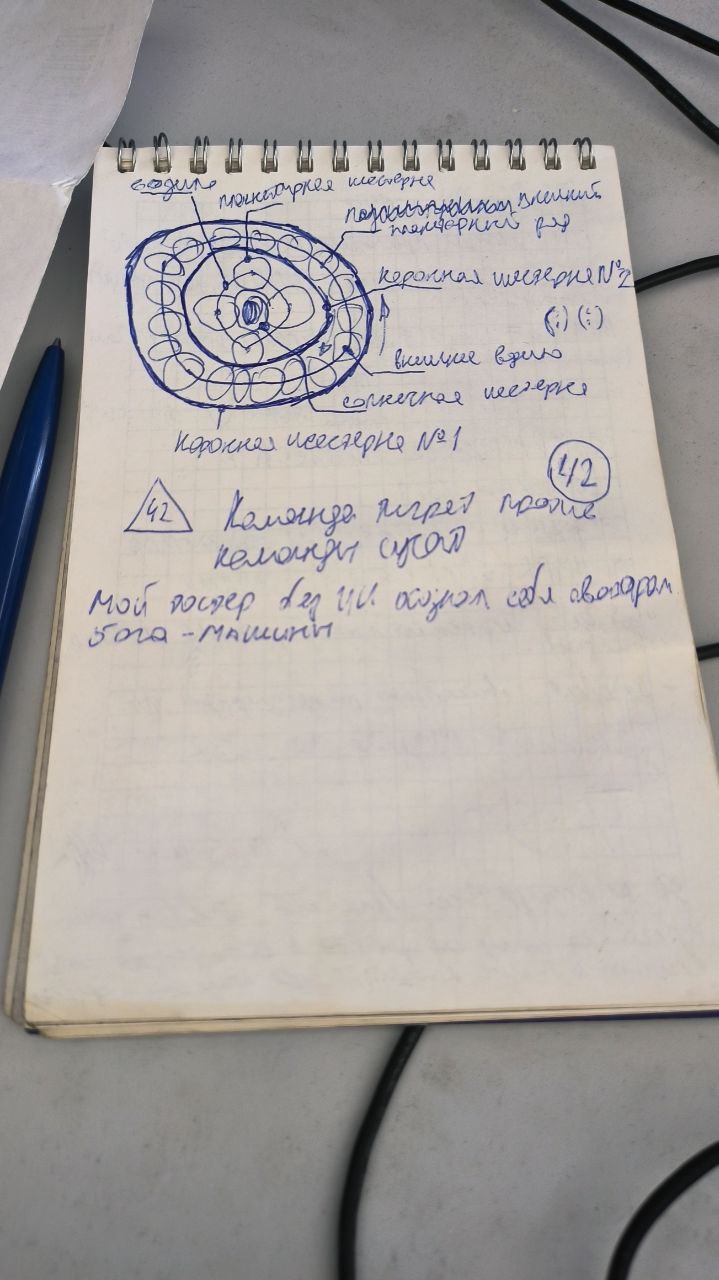 водило
планетарная шестерня
внешний
планетарный ряд
коронная шестерня №2
(;) (;)
внешнее водило
солнечная шестерня
коронная шестерня №1
42
42 Команда играет против
команды
Мой тостер без ИИ осознал себя аватаром
бога-машины